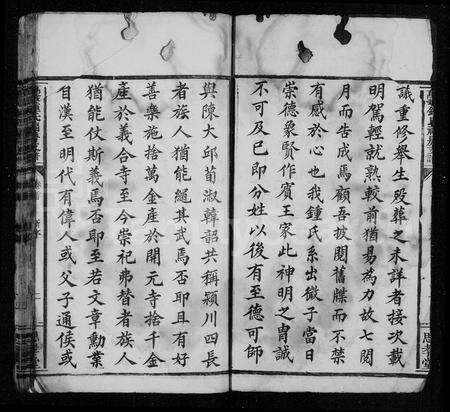 議重修舉生歿葬之未詳者按次載
明駕輕就熟較前猶易為力故七閱
月而告成焉顧吾披閱舊牒而不禁
有感於心也我鍾氏系出微子當日
崇德象賢作賓王家此神明之胄誠
不可及已即分姓以後有至德可師
與陳大邱荀淑韓韶共稱潁川四長
者族人猶能繩其武焉否耶且有好
善樂施捨萬金產於開元寺捨千金
產於義合寺至今崇祀弗替者族人
猶能仗斯義焉否耶至若文章勳業
自漢至明代有偉人或父子通侯或